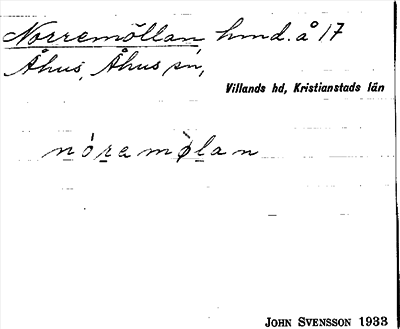 Norremöllan, hmd. å 17
Åhus, Åhus sn,
Villands hd, Kristianstads län
nòramølan
JOHN SVENSSON 1933